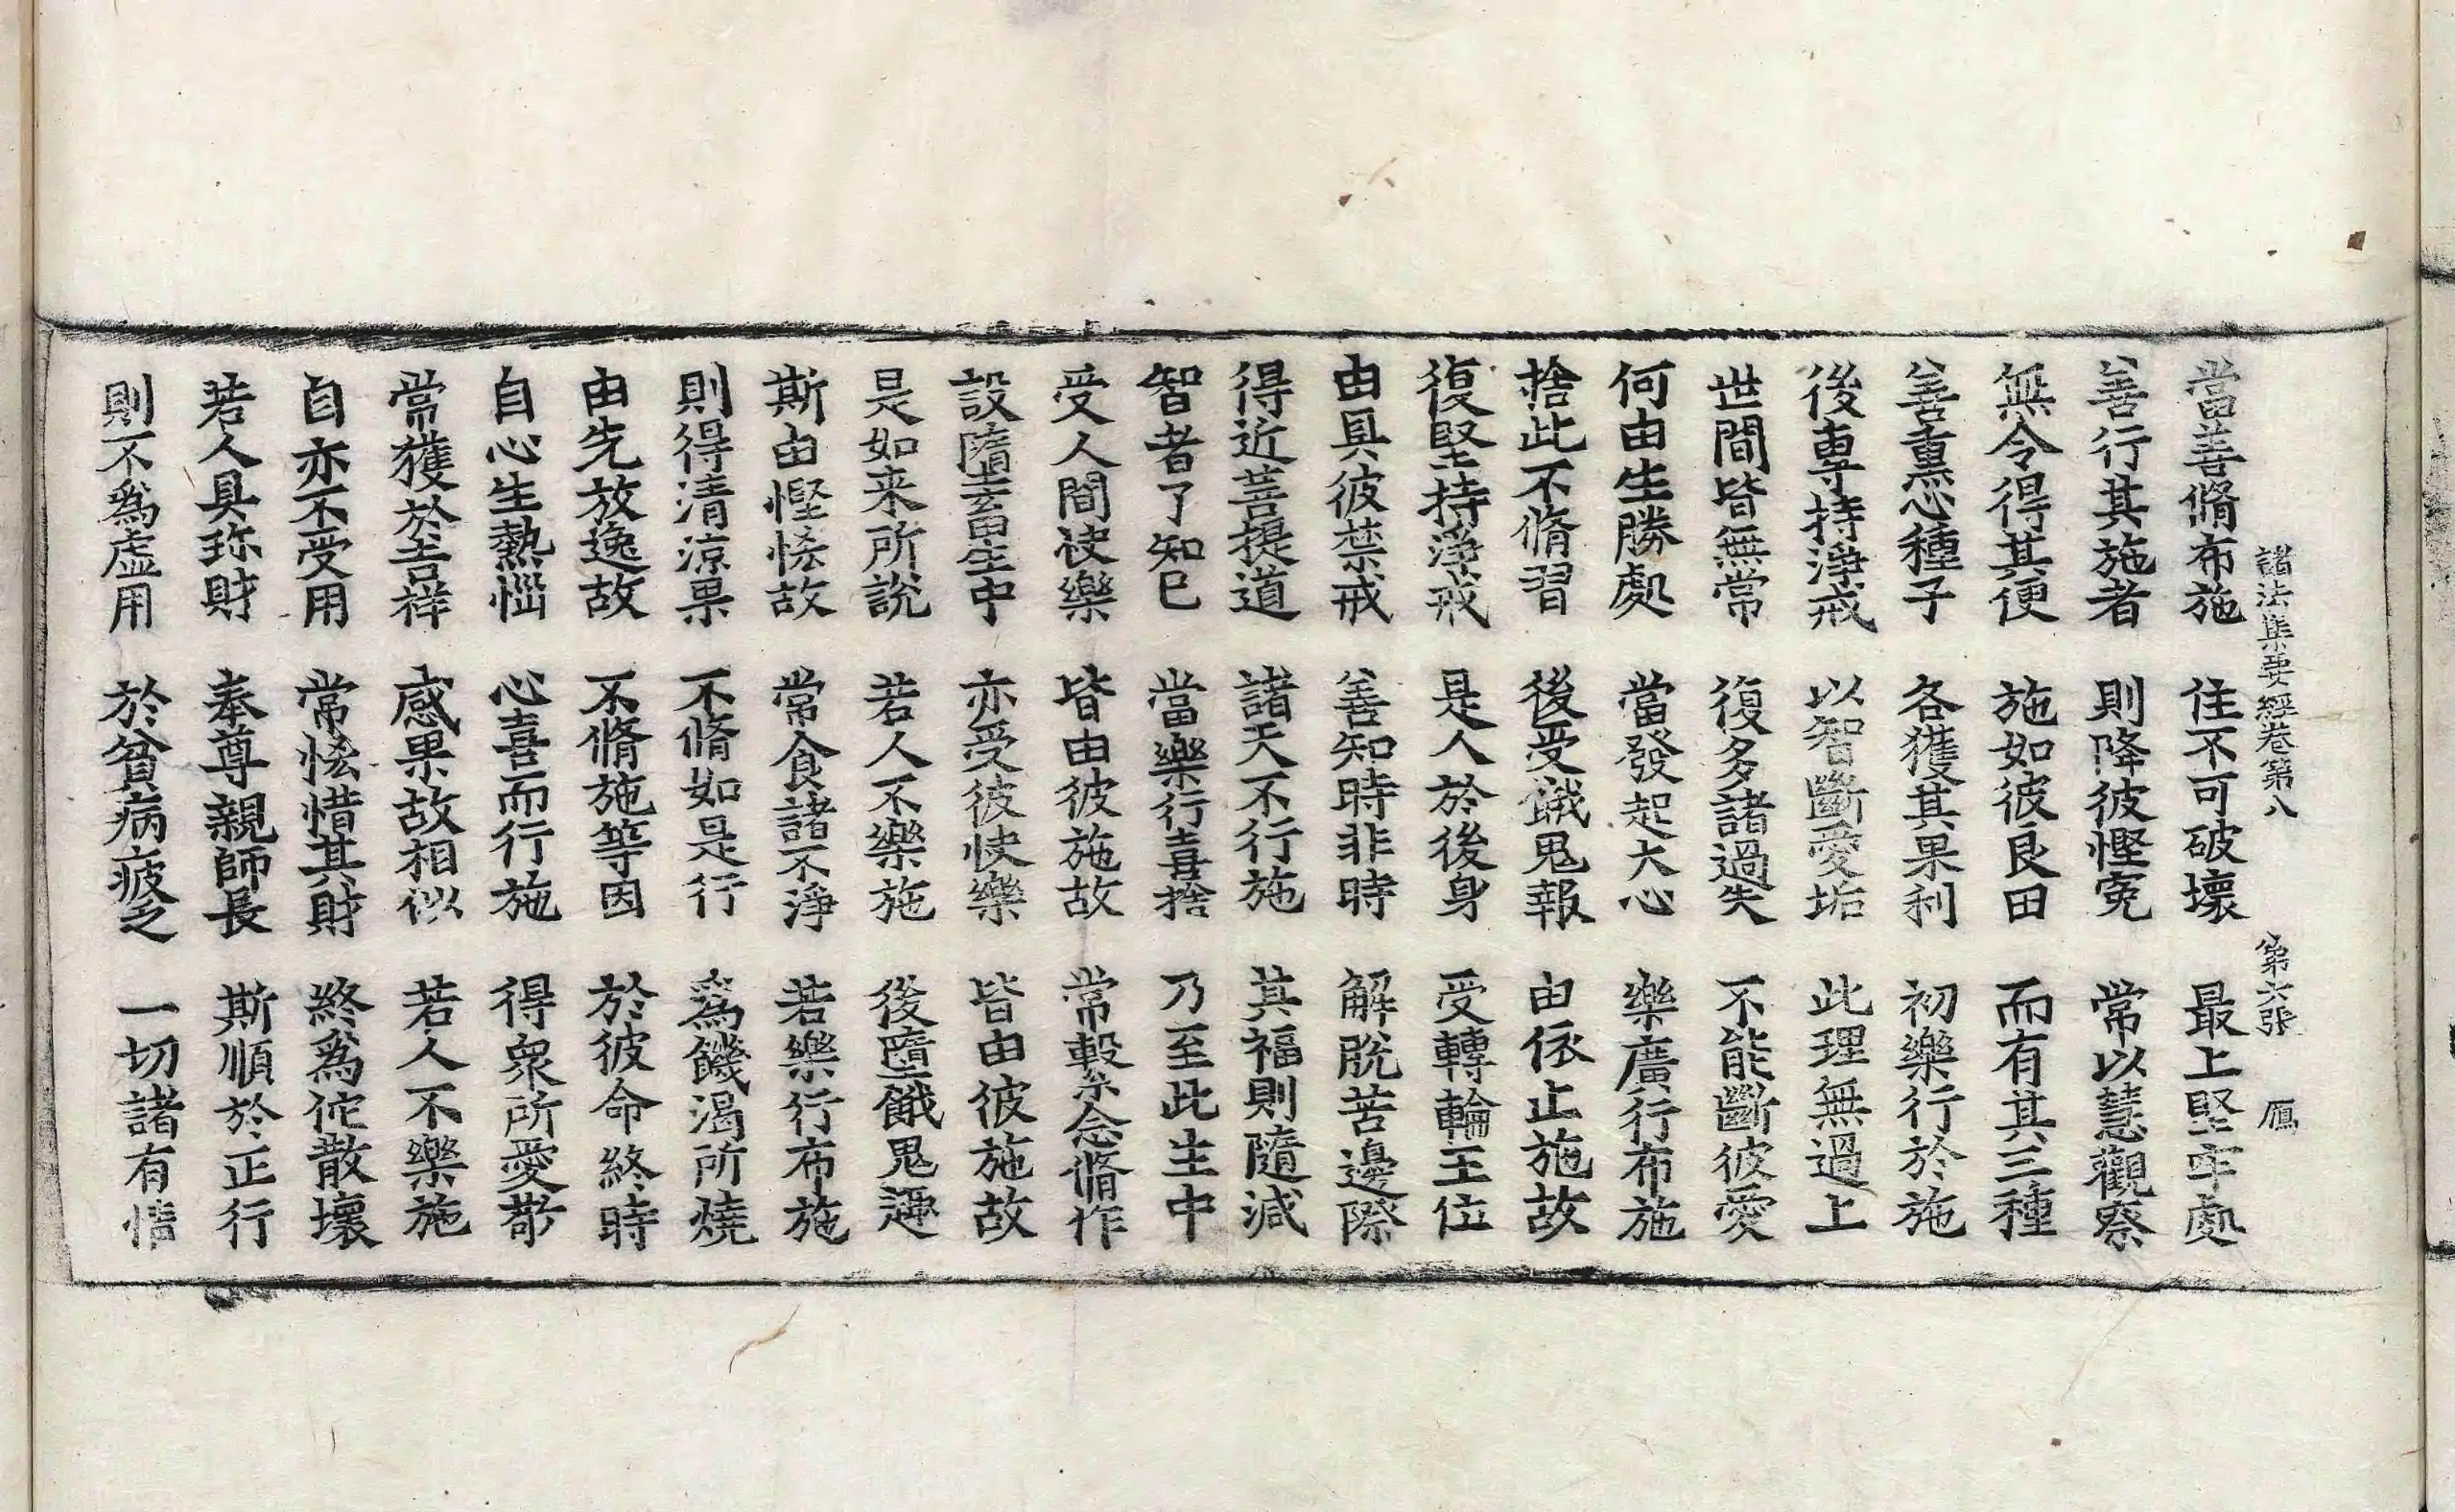 諸法集要經卷第八 第六張 鴈
當善脩布施 住不可破壞 最上堅牢處
善行其施者 則降彼慳寃 常以慧觀察
無令得其便 施如彼良田 而有其三種
善熏心種子 各獲其果利 初樂行於施
後專持淨戒 以智斷愛垢 此理無過上
世間皆無常 復多諸過失 不能斷彼愛
何由生勝處 當發起大心 樂廣行布施
捨此不脩習 後受餓鬼報 由依止施故
復堅持淨戒 是人於後身 受轉輪王位
由具彼禁戒 善知時非時 解脫苦邊際
得近菩提道 諸天不行施 其福則隨減
智者了知已 當樂行喜捨 乃至此生中
受人間快樂 皆由彼施故 常繫念脩作
設墮畜生中 亦受彼快樂 皆由彼施故
是如来所說 若人不樂施 後墮餓鬼趣
斯由慳悋故 常食諸不淨 若樂行布施
則得清涼果 不脩如是行 爲饑渴所燒
由先放逸故 不脩施等因 於彼命終時
自心生熱惱 心喜而行施 得衆所愛敬
常獲於吉祥 感果故相似 若人不樂施
自亦不受用 常悋惜其財 終爲佗散壞
若人具珎財 奉尊親師長 斯順於正行
則不爲虛用 於貧病疲乏 一切諸有情